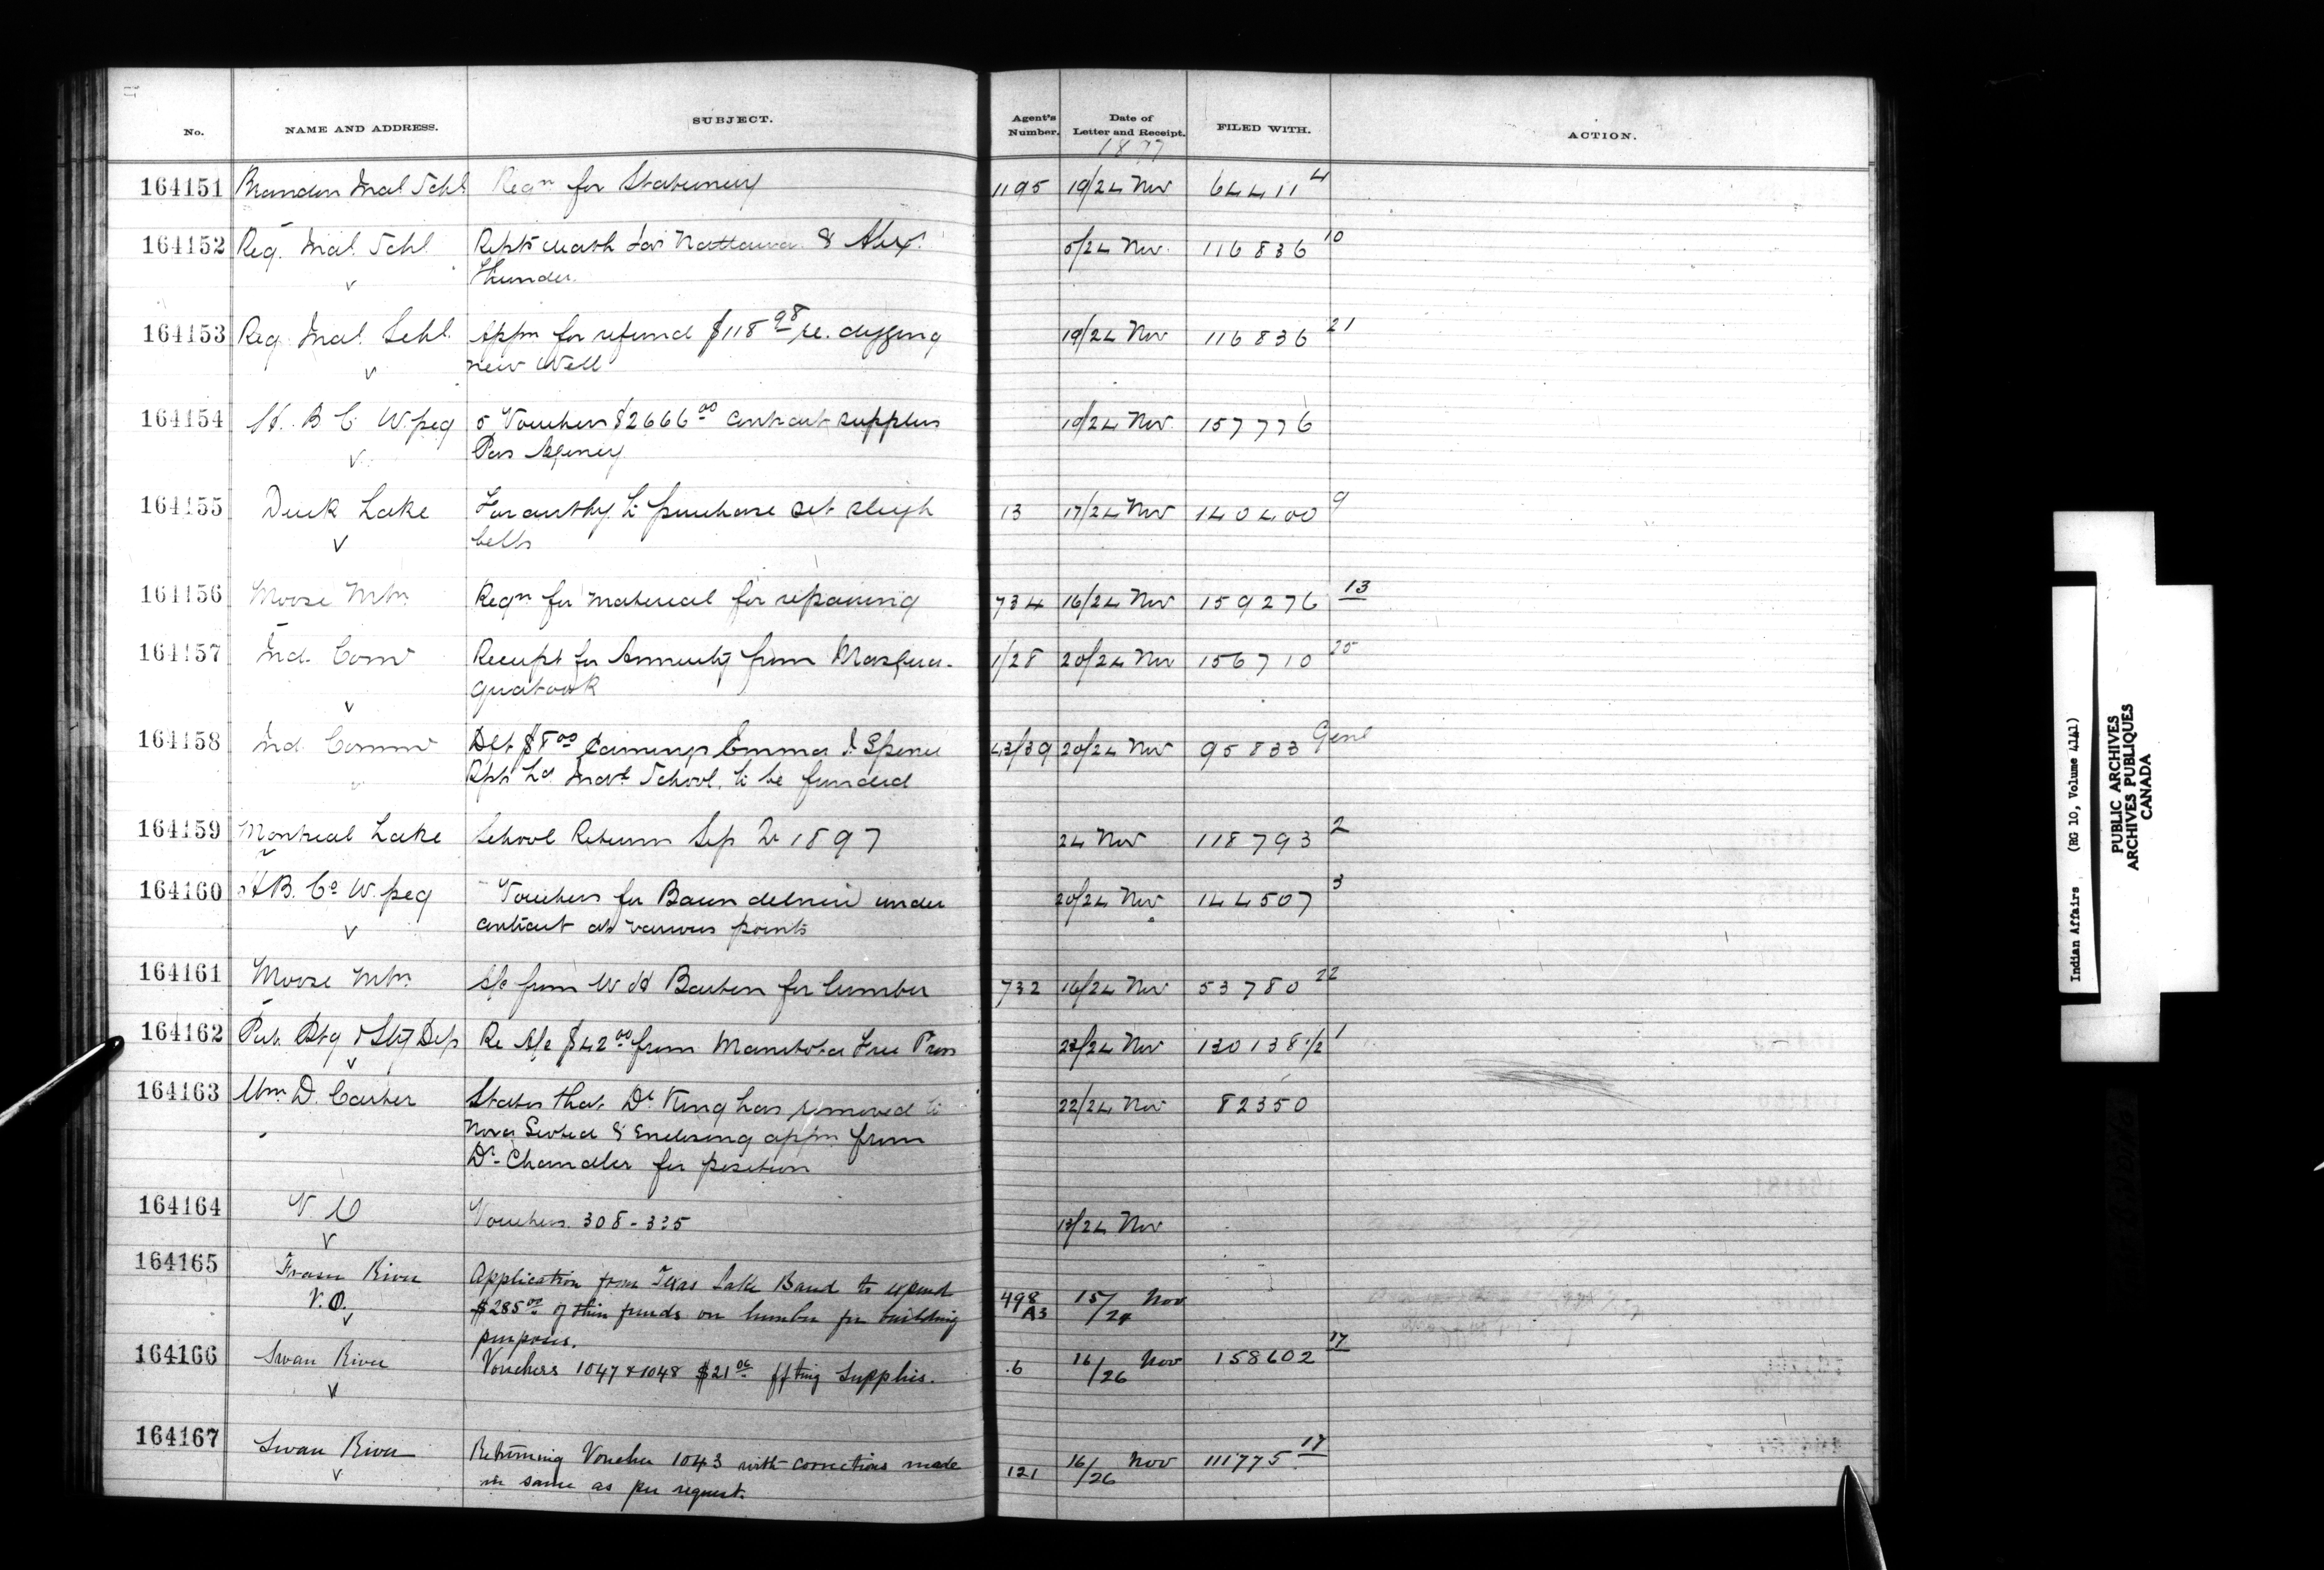 No. NAME AND ADDRESS. SUBJECT. Agent's Number. Date of Letter and Receipt. FILED WITH. ACTION.
1897
164151 Brandon Indl Schl Reqn for Stationery 1195 19/24 Nov 64411 4
164152 Reg. Indl. Schl Repts death Jas Nattawa & Alex. 5/24 Nov. 116836 10
Thunder.
164153 Reg. Indl. Schl. Appn for refund $118 98 re. digging 19/24 Nov 116836 21
new Well
164154 H. B. C. W.peg 5 Vouchers $2666 00 contract supplies 19/24 Nov. 157776
Pas Agency
164155 Duck Lake For authy to purchase set sleigh 13 17/24 Nov 140400 9
bells
164156 Moose Mtn. Reqn for material for repairing 734 16/24 Nov 159276 13
164157 Ind. Comr Receipt for Annuity from 1/28 20/24 Nov 156710 25
164158 Ind. Commr Dft $8 00 earnings Emma J. Spence 43/39 20/24 Nov 95833 Genl
Rpts Ld. School. to be funded
164159 Montreal Lake School Return Sep Qr 1897 24 Nov 118793 2
164160 H B. Co W.peg Vouchers for Bacon delived under 20/24 Nov 144507 3
contract at various points
164161 Moose Mtn. A/c from W H for lumber 732 16/24 Nov 53780 22
164162 Pub. Ptg & Sty Dep Re A/c $42 00 from Manitoba Free Press 23/24 Nov 130138 1/2 1
164163 Wm D. Carter States that Dr King has removed to 22/24 Nov 82350
Nova Scotia & Enclosing appn from
Dr. Chandler for position
164164 V. O Vouchers. 308-335 13/24 Nov
164165 Fraser River Application from Texas Lake Band to expend
V.O. $285 00 of their funds on lumber for building 498 A3 15/24 Nov
purposes.
164166 Swan River Vouchers 1047 & 1048 $21 06 ffting Supplies. 6 16/26 Nov 158602 17
164167 Swan River Returning Voucher 1043 with corrections made 121 16/26 Nov 111775 17
in same as per request.
Indian Affairs (RG 10, Volume 4141)
PUBLIC ARCHIVES
ARCHIVES PUBLIQUES
CANADA